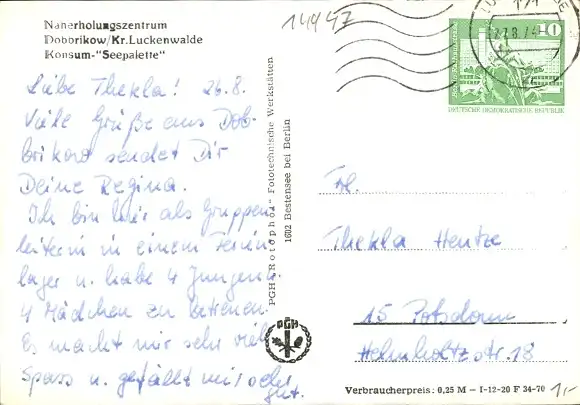 Naherholungszentrum
Dobbrikow/Kr. Luckenwalde
Konsum-"Seepalette"
14447
Liebe Thekla! 26.8.
Viele Grüße aus Dob-
brikow sendet Dir
Deine Regina.
Ich bin hier als Gruppen-
leiterin in einem Ferien-
lager u. habe 4 Jungen u.
4 Mädchen zu betreuen.
Es macht mir sehr viel
Spass u. gefällt mir sehr
gut.
PGH "Rotophot" Fototechnische Werkstätten
1602 Bestensee bei Berlin
PGH
10
DEUTSCHE DEMOKRATISCHE REPUBLIK
Frl.
Thekla Hentze
15 Potsdam
Helmholtzstr. 18
Verbraucherpreis: 0,25 M - I-12-20 F 34-70
1,-